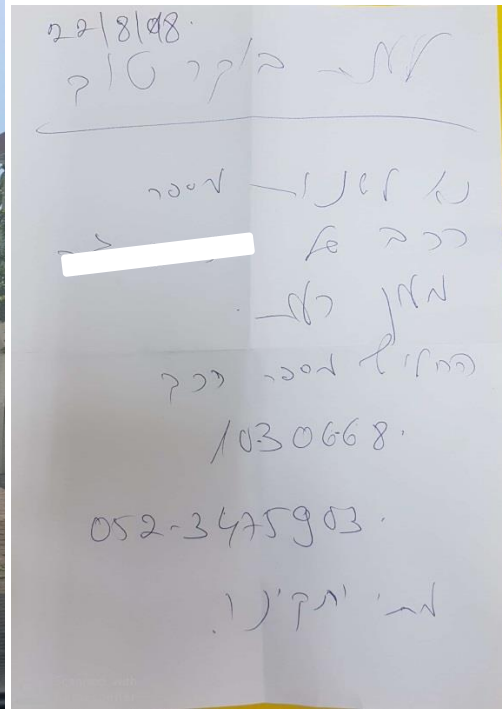 22/8/18.
בוקר טוב
נא לשנות מספר
רכב של
החליף מספר רכב
1030668.
052-3475903.
מתי יתקינו.